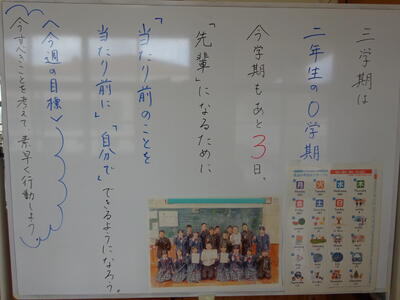 三学期は
二年生の0学期
今学期もあと3日。
「先輩」になるために
「当たり前のことを
当たり前に」「自分で」できるようになろう。
＜今週の目標＞
今すべきことを考えて、素早く行動しよう
月 火 水 木
金 土 日